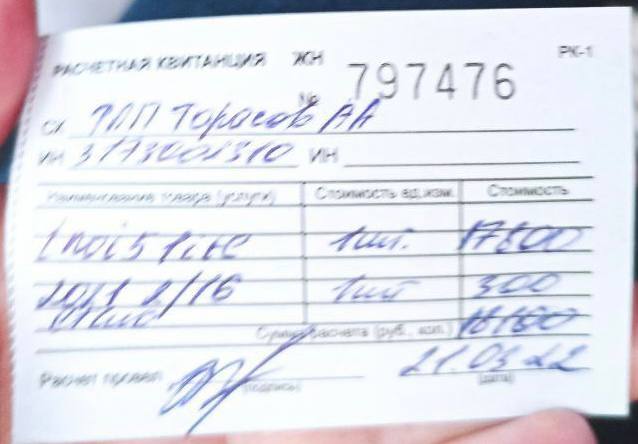 РАСЧЕТНАЯ КВИТАНЦИЯ ЖН № 797476 РК-1
СК ФЛП Тарасов АА
ИН 3173001310 ИН
Наименование товара (услуги) Стоимость ед.изм. Стоимость
1шт. 17800
2/16 1шт 300
Сумма расчета (руб., коп.)
Расчет провел (подпись) 21.03.22 (дата)